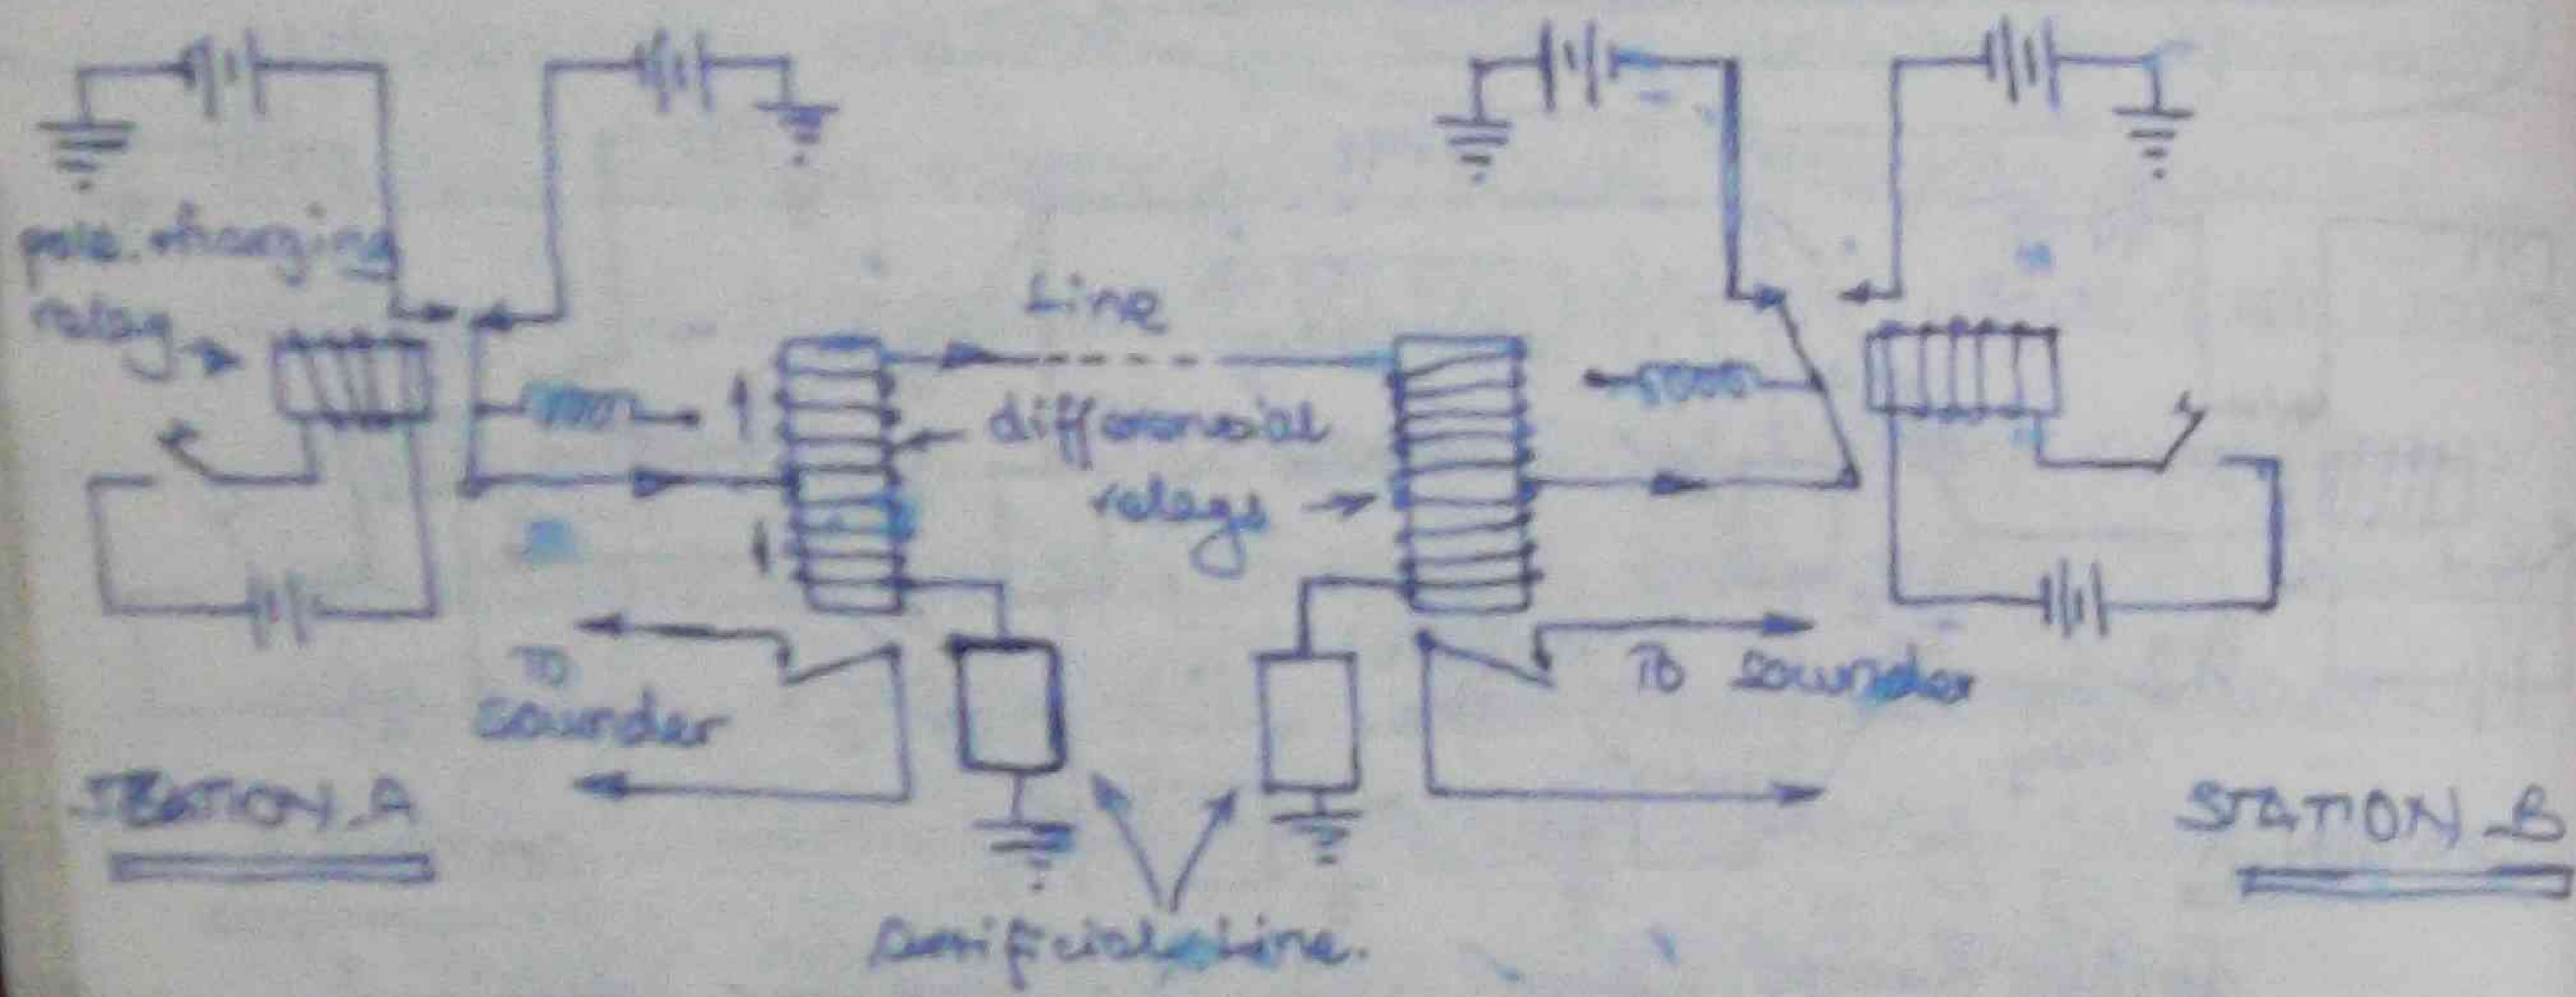 pole changing
relay
Line
differensial
relays
To
sounder
To sounder
STATION A
STATION B
Artificial Line.